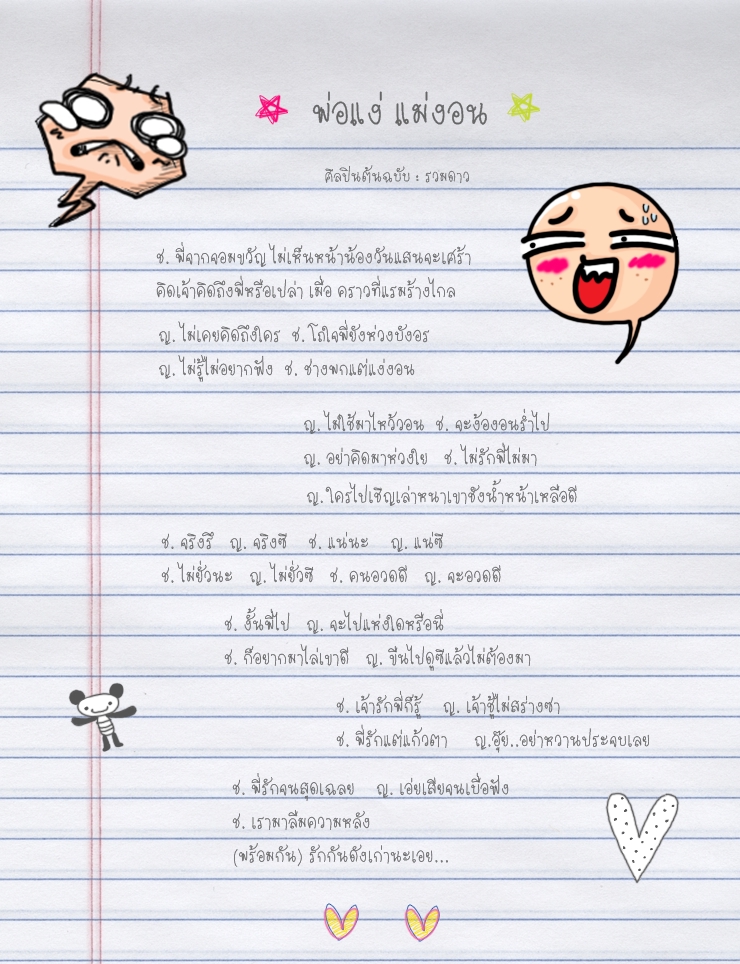 พ่อแง่ แม่งอน
ศิลปินต้นฉบับ : รวมดาว
ช. พี่จากจอมขวัญ ไม่เห็นหน้าน้องวันแสนจะเศร้า
คิดเจ้าคิดถึงพี่หรือเปล่า เมื่อ คราวที่แรมร้างไกล
ญ. ไม่เคยคิดถึงใคร ช. โถใจพี่ยังห่วงบังอร
ญ. ไม่รู้ไม่อยากฟัง ช. ช่างพกแต่แง่งอน
ญ. ไม่ใช้มาไหว้วอน ช. จะง้องอนร่ำไป
ญ. อย่าคิดมาห่วงใย ช. ไม่รักพี่ไม่มา
ญ. ใครไปเชิญเล่าหนาเขาชังน้ำหน้าเหลือดี
ช. จริงรึ ญ. จริงซิ ช. แน่นะ ญ. แน่ซิ
ช. ไม่ยั่วนะ ญ. ไม่ยั่วซิ ช. คนอวดดี ญ. จะอวดดี
ช. งั้นพี่ไป ญ. จะไปแห่งใดหรือนี่
ช. ก็อยากมาไล่เขาดี ญ. ขืนไปดูซิแล้วไม่ต้องมา
ช. เจ้ารักพี่ก็รู้ ญ. เจ้าชู้ไม่สร่างซา
ช. พี่รักแต่แก้วตา ญ.อุ๊ย..อย่าหวานประจบเลย
ช. พี่รักจนสุดเฉลย ญ. เอ่ยเสียจนเบื่อฟัง
ช. เรามาลืมความหลัง
(พร้อมกัน) รักกันดังเก่านะเอย...